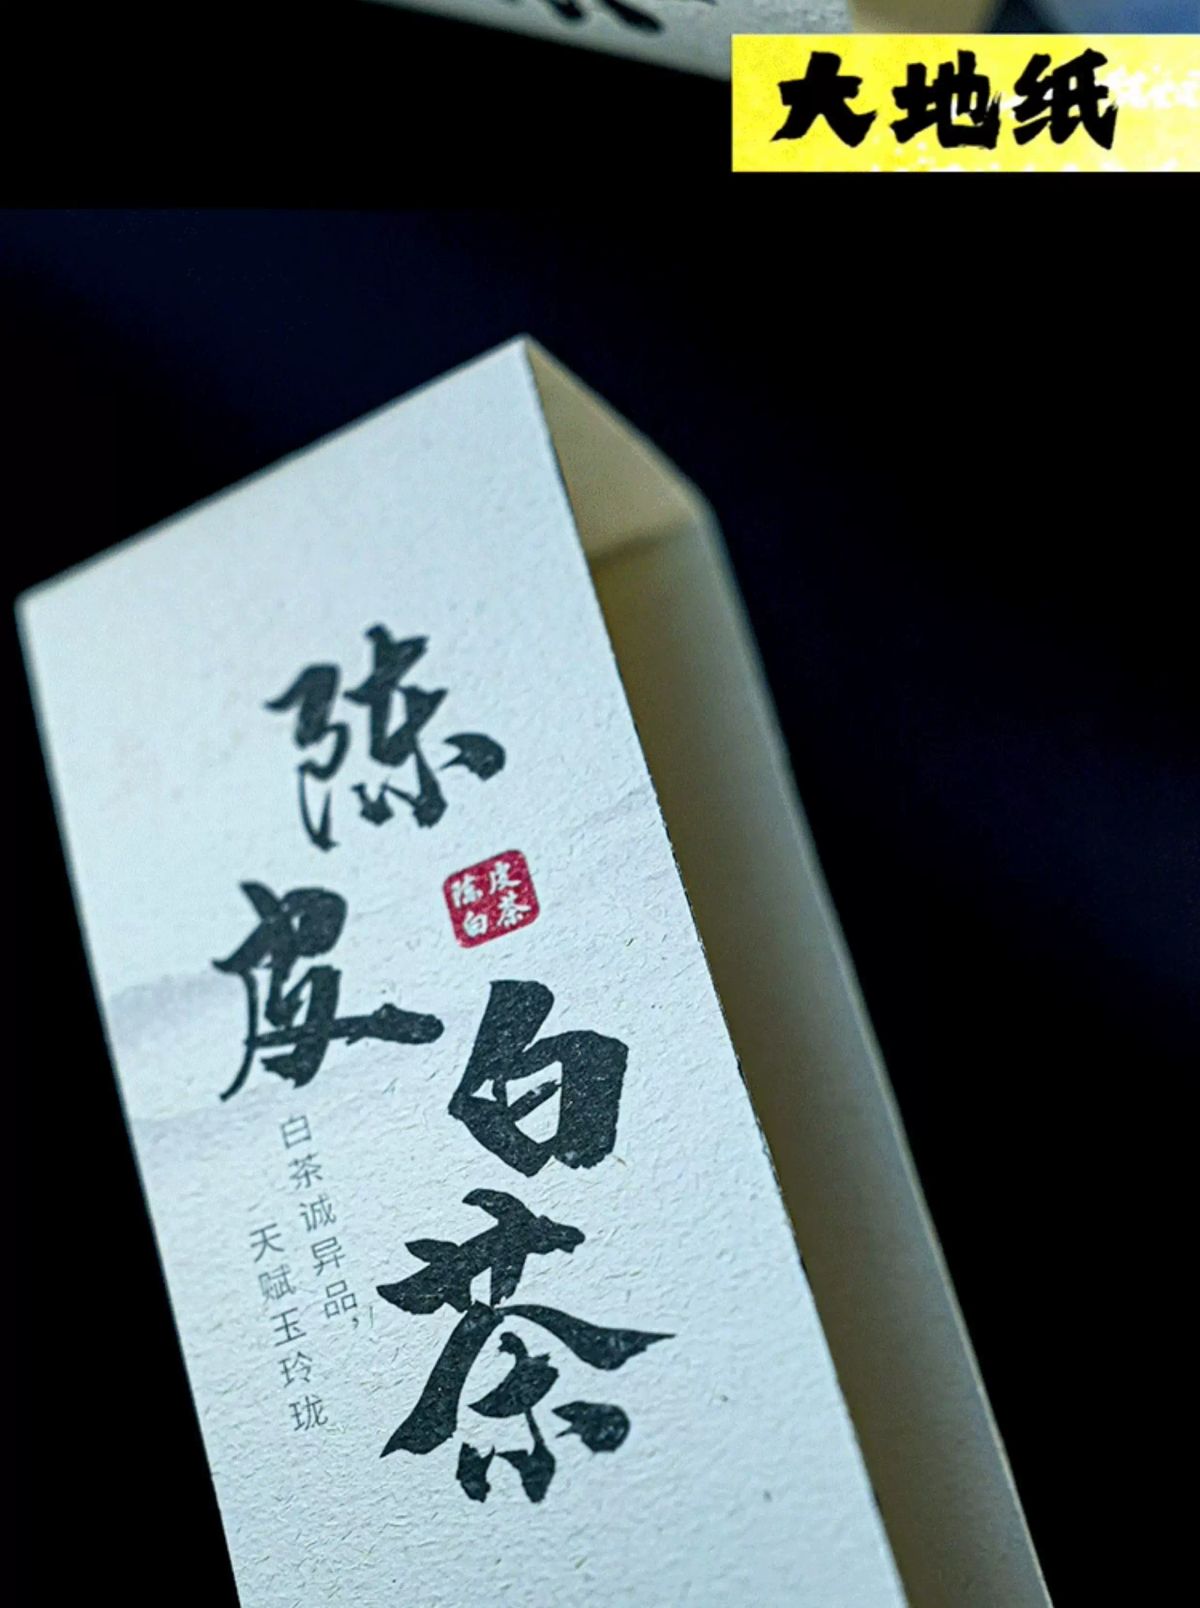 大地纸
陈皮
白茶
陈皮
白茶
白茶诚异品，
天赋玉玲珑